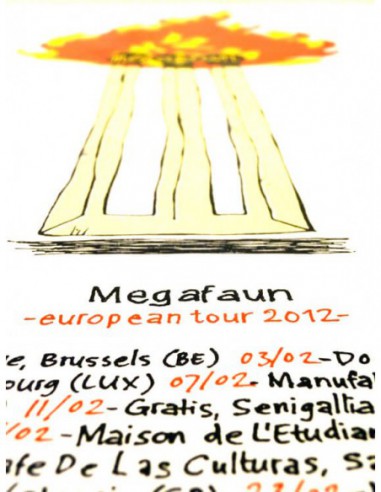 Megafaun
-european tour 2012-
Brussels (BE) 03/02-Do
(LUX) 07/02- Manufa
11/02-Gratis, Senigallia
/02-Maison de L'Etudian
De Las Culturas, Sa